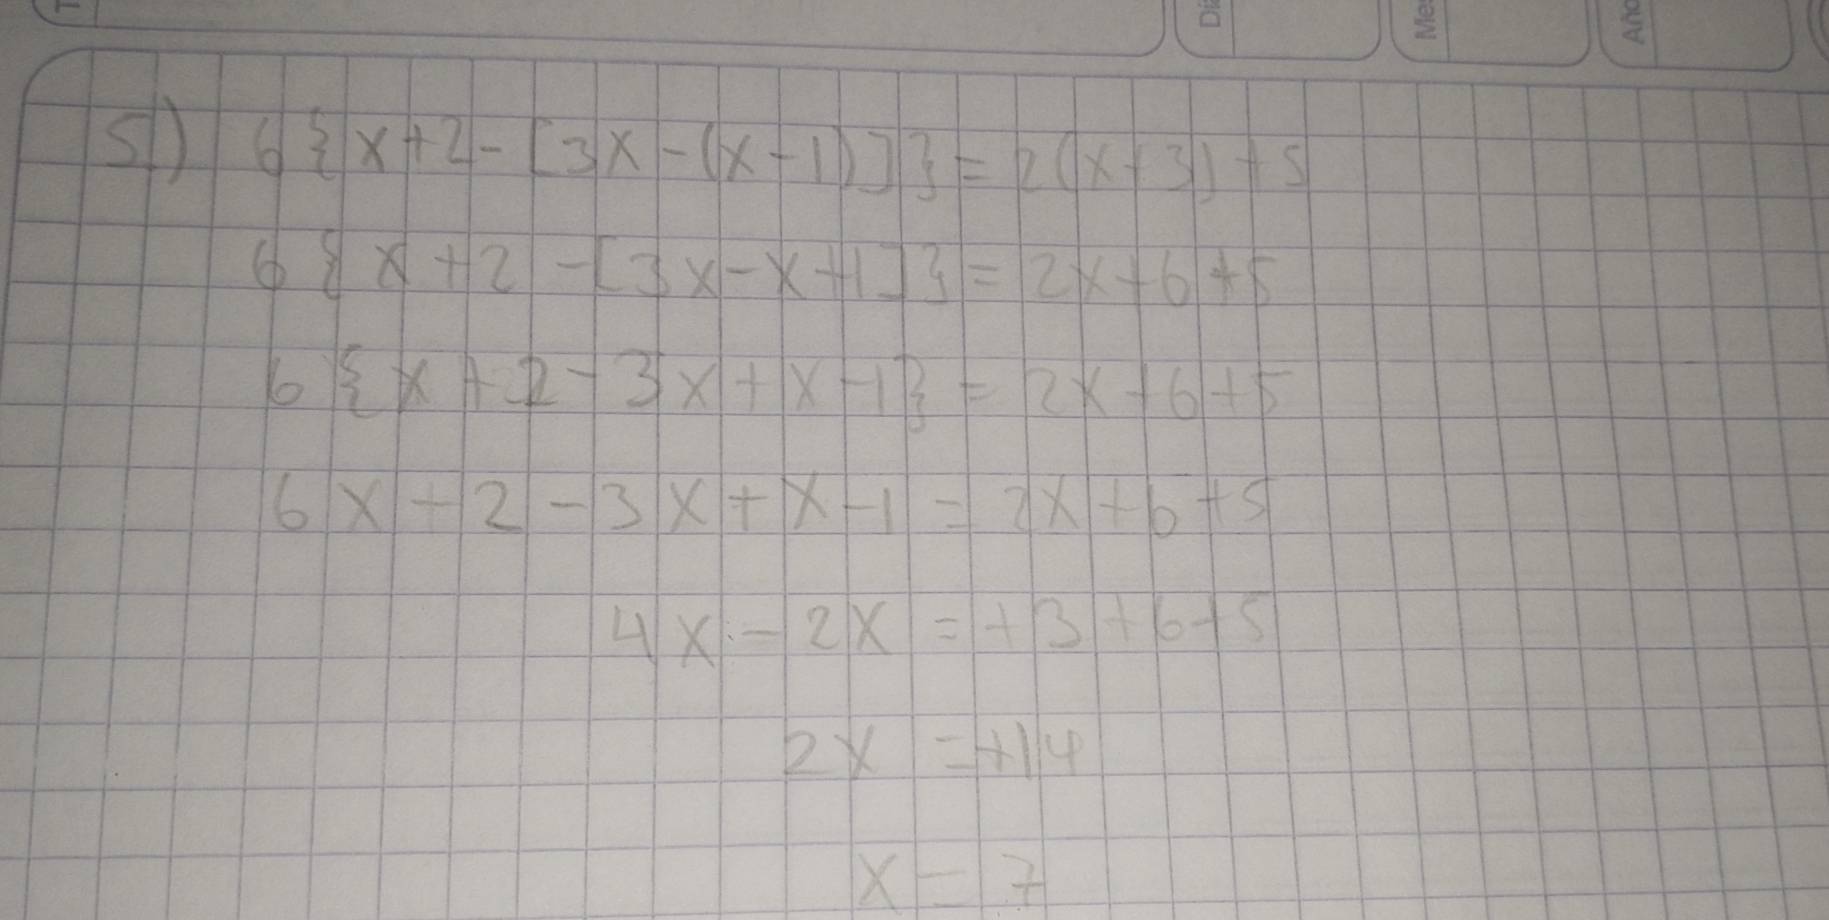 Día Mes Año
5) 6{x+2-[3x-(x-1)]}=2(x+3)+5
6{x+2-[3x-x+1]}=2x+6+5
6{x+2-3x+x-1}=2x+6+5
6x+2-3x+x-1=2x+6+5
4x-2x=+3+6+5
2x=+14
x=7